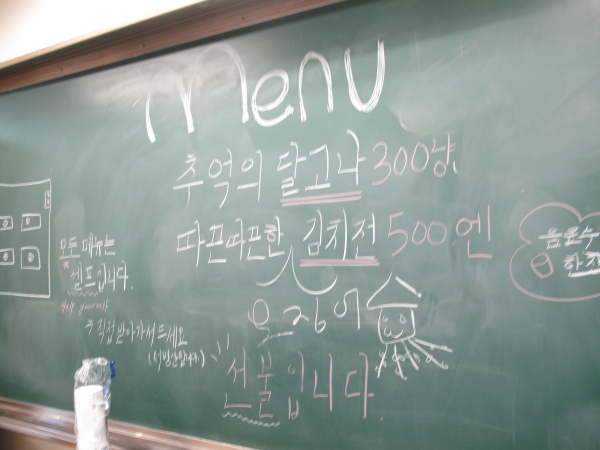 Menu
추억의 달고나 300냥
따끈따끈한 김치전 500엔
오징어
선불입니다.
모든 메뉴는
셀프입니다.
help yourself
직접 받아가서 드세요
음료수
한잔